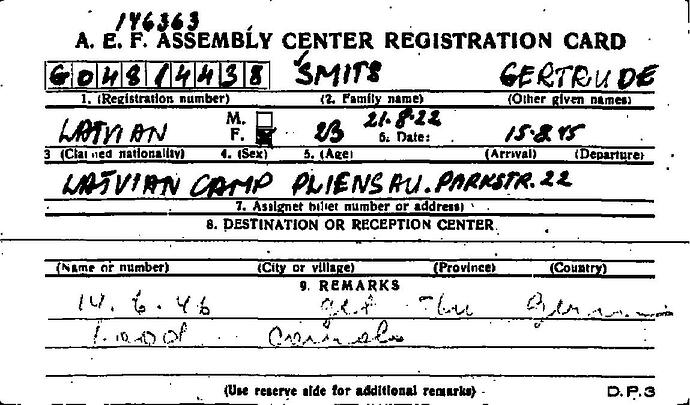 146363
A. E. F. ASSEMBLY CENTER REGISTRATION CARD
G04814438 SMITS GERTRUDE
1. (Registration number) (2. Family name) (Other given names)
LATVIAN M. F. 23 21-8-22 15-8-45
3 (Claimed nationality) 4. (Sex) 5. (Age) 6. Date: (Arrival) (Departure)
LATVIAN CAMP PLIENSAU. PARKSTR. 22
7. Assignet billet number or address)
8. DESTINATION OR RECEPTION CENTER
(Name or number) (City or village) (Province) (Country)
9. REMARKS
14. 6. 46 get the German
food
(Use reserve side for additional remarks)
D.P.3